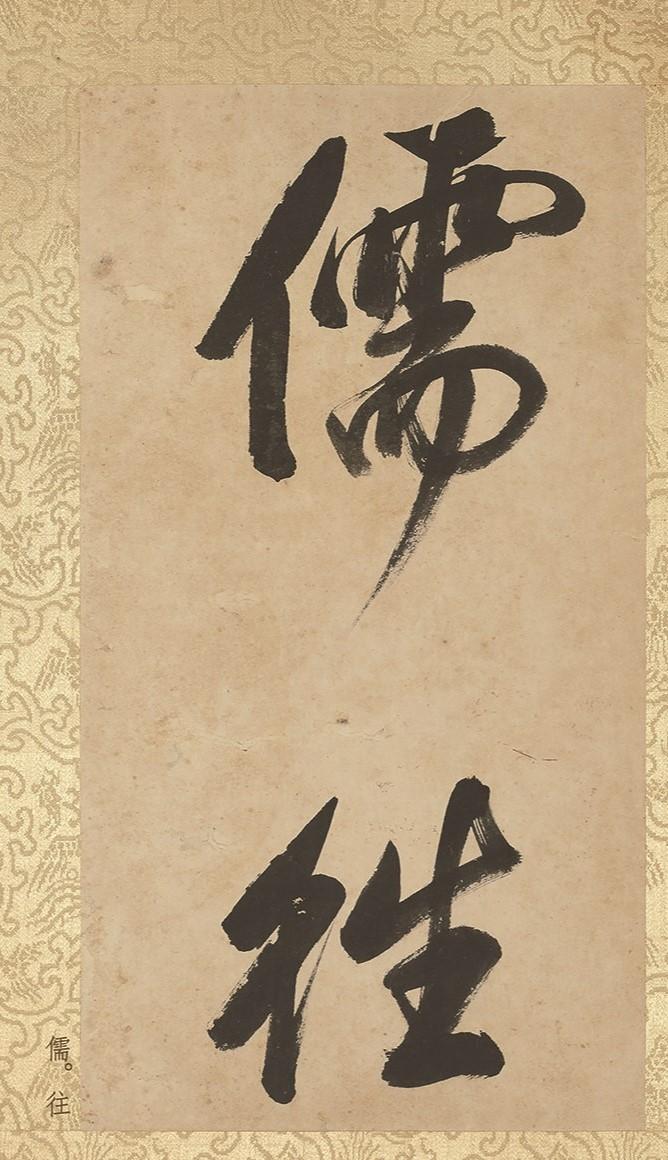 儒往
儒。往